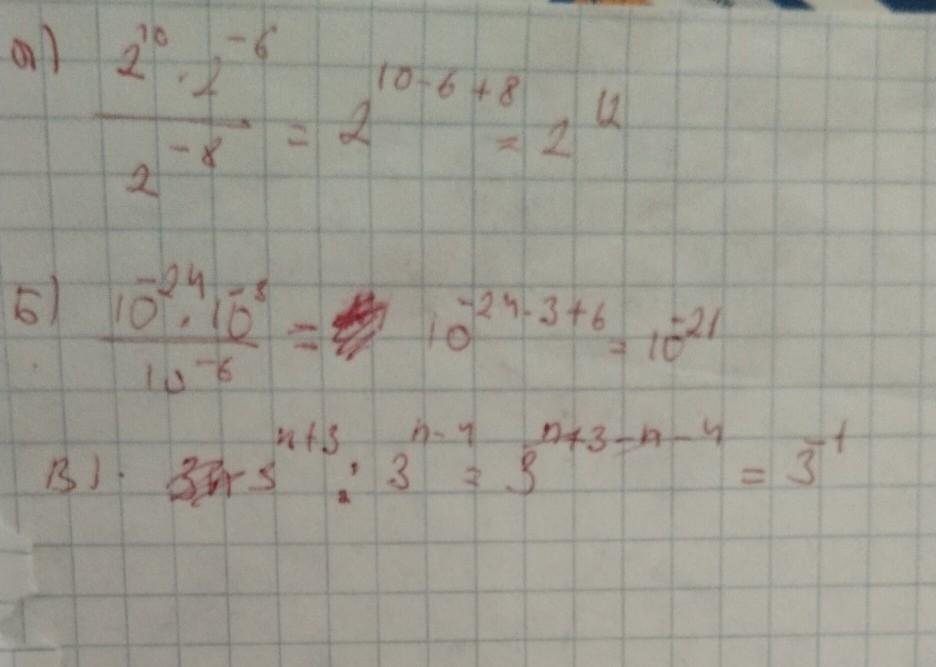 а) (2¹⁰ · 2⁻⁶) / 2⁻⁸ = 2¹⁰⁻⁶⁺⁸ = 2¹²
Б) (10⁻²⁴ · 10⁻³) / 10⁻⁶ = 10⁻²⁴⁻³⁺⁶ = 10⁻²¹
В) 3ⁿ⁺³ : 3ⁿ⁻⁴ = 3ⁿ⁺³⁻ⁿ⁻⁴ = 3⁻¹